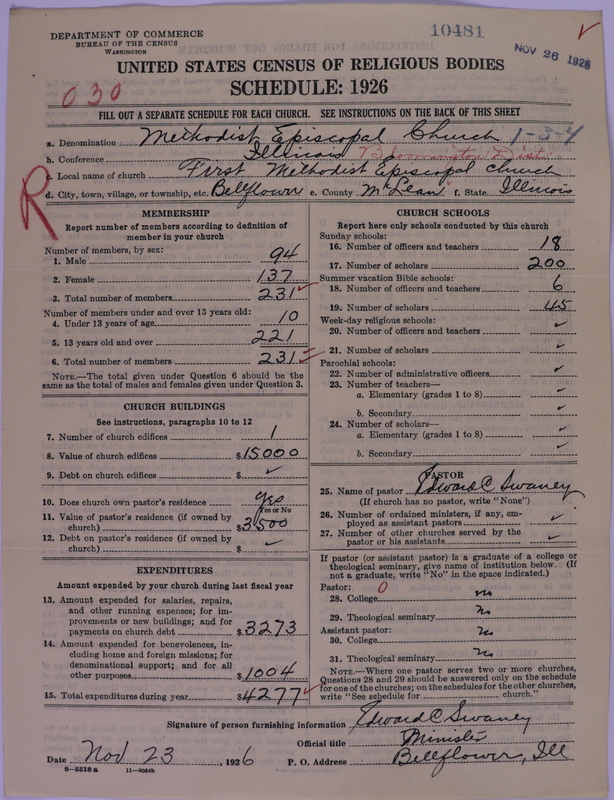 DEPARTMENT OF COMMERCE
BUREAU OF THE CENSUS
WASHINGTON
10481
NOV 26 1926
UNITED STATES CENSUS OF RELIGIOUS BODIES
SCHEDULE: 1926
030
FILL OUT A SEPARATE SCHEDULE FOR EACH CHURCH. SEE INSTRUCTIONS ON THE BACK OF THIS SHEET
a. Denomination Methodist Episcopal Church 1-3-4
b. Conference Illinois Bloomington Dist.
c. Local name of church First Methodist Episcopal church
d. City, town, village, or township, etc. Bellflower e. County McLean f. State Illinois
R
MEMBERSHIP
Report number of members according to definition of
member in your church
Number of members, by sex:
1. Male 94
2. Female 137
3. Total number of members 231
Number of members under and over 13 years old:
4. Under 13 years of age 10
5. 13 years old and over 221
6. Total number of members 231
NOTE.—The total given under Question 6 should be
same as the total of males and females given under Question 3.
CHURCH BUILDINGS
See instructions, paragraphs 10 to 12
7. Number of church edifices 1
8. Value of church edifices $15000
9. Debt on church edifices $ ✓
10. Does church own pastor's residence yes
Yes or No
11. Value of pastor's residence (if owned by
church) $3500
12. Debt on pastor's residence (if owned by
church) $ ✓
EXPENDITURES
Amount expended by your church during last fiscal year
13. Amount expended for salaries, repairs,
and other running expenses; for im-
provements or new buildings; and for
payments on church debt $3273
14. Amount expended for benevolences, in-
cluding home and foreign missions; for
denominational support; and for all
other purposes $1004
15. Total expenditures during year $4277
CHURCH SCHOOLS
Report here only schools conducted by this church
Sunday schools:
16. Number of officers and teachers 18
17. Number of scholars 200
Summer vacation Bible schools:
18. Number of officers and teachers 6
19. Number of scholars 45
Week-day religious schools:
20. Number of officers and teachers ✓
21. Number of scholars ✓
Parochial schools:
22. Number of administrative officers ✓
23. Number of teachers—
a. Elementary (grades 1 to 8) ✓
b. Secondary ✓
24. Number of scholars—
a. Elementary (grades 1 to 8) ✓
b. Secondary ✓
PASTOR
25. Name of pastor Edward C Swaney
(If church has no pastor, write "None")
26. Number of ordained ministers, if any, em-
ployed as assistant pastors ✓
27. Number of other churches served by the
pastor or his assistants ✓
If pastor (or assistant pastor) is a graduate of a college or
theological seminary, give name of institution below. (If
not a graduate, write "No" in the space indicated.)
Pastor: 0
28. College no
29. Theological seminary no
Assistant pastor:
30. College no
31. Theological seminary no
NOTE.—Where one pastor serves two or more churches,
Questions 28 and 29 should be answered only on the schedule
for one of the churches; on the schedules for the other churches,
write "See schedule for church."
Signature of person furnishing information Edward C Swaney
Official title Minister
Date Nov 23, 1926 P. O. Address Bellflower, Ill
8-5518a